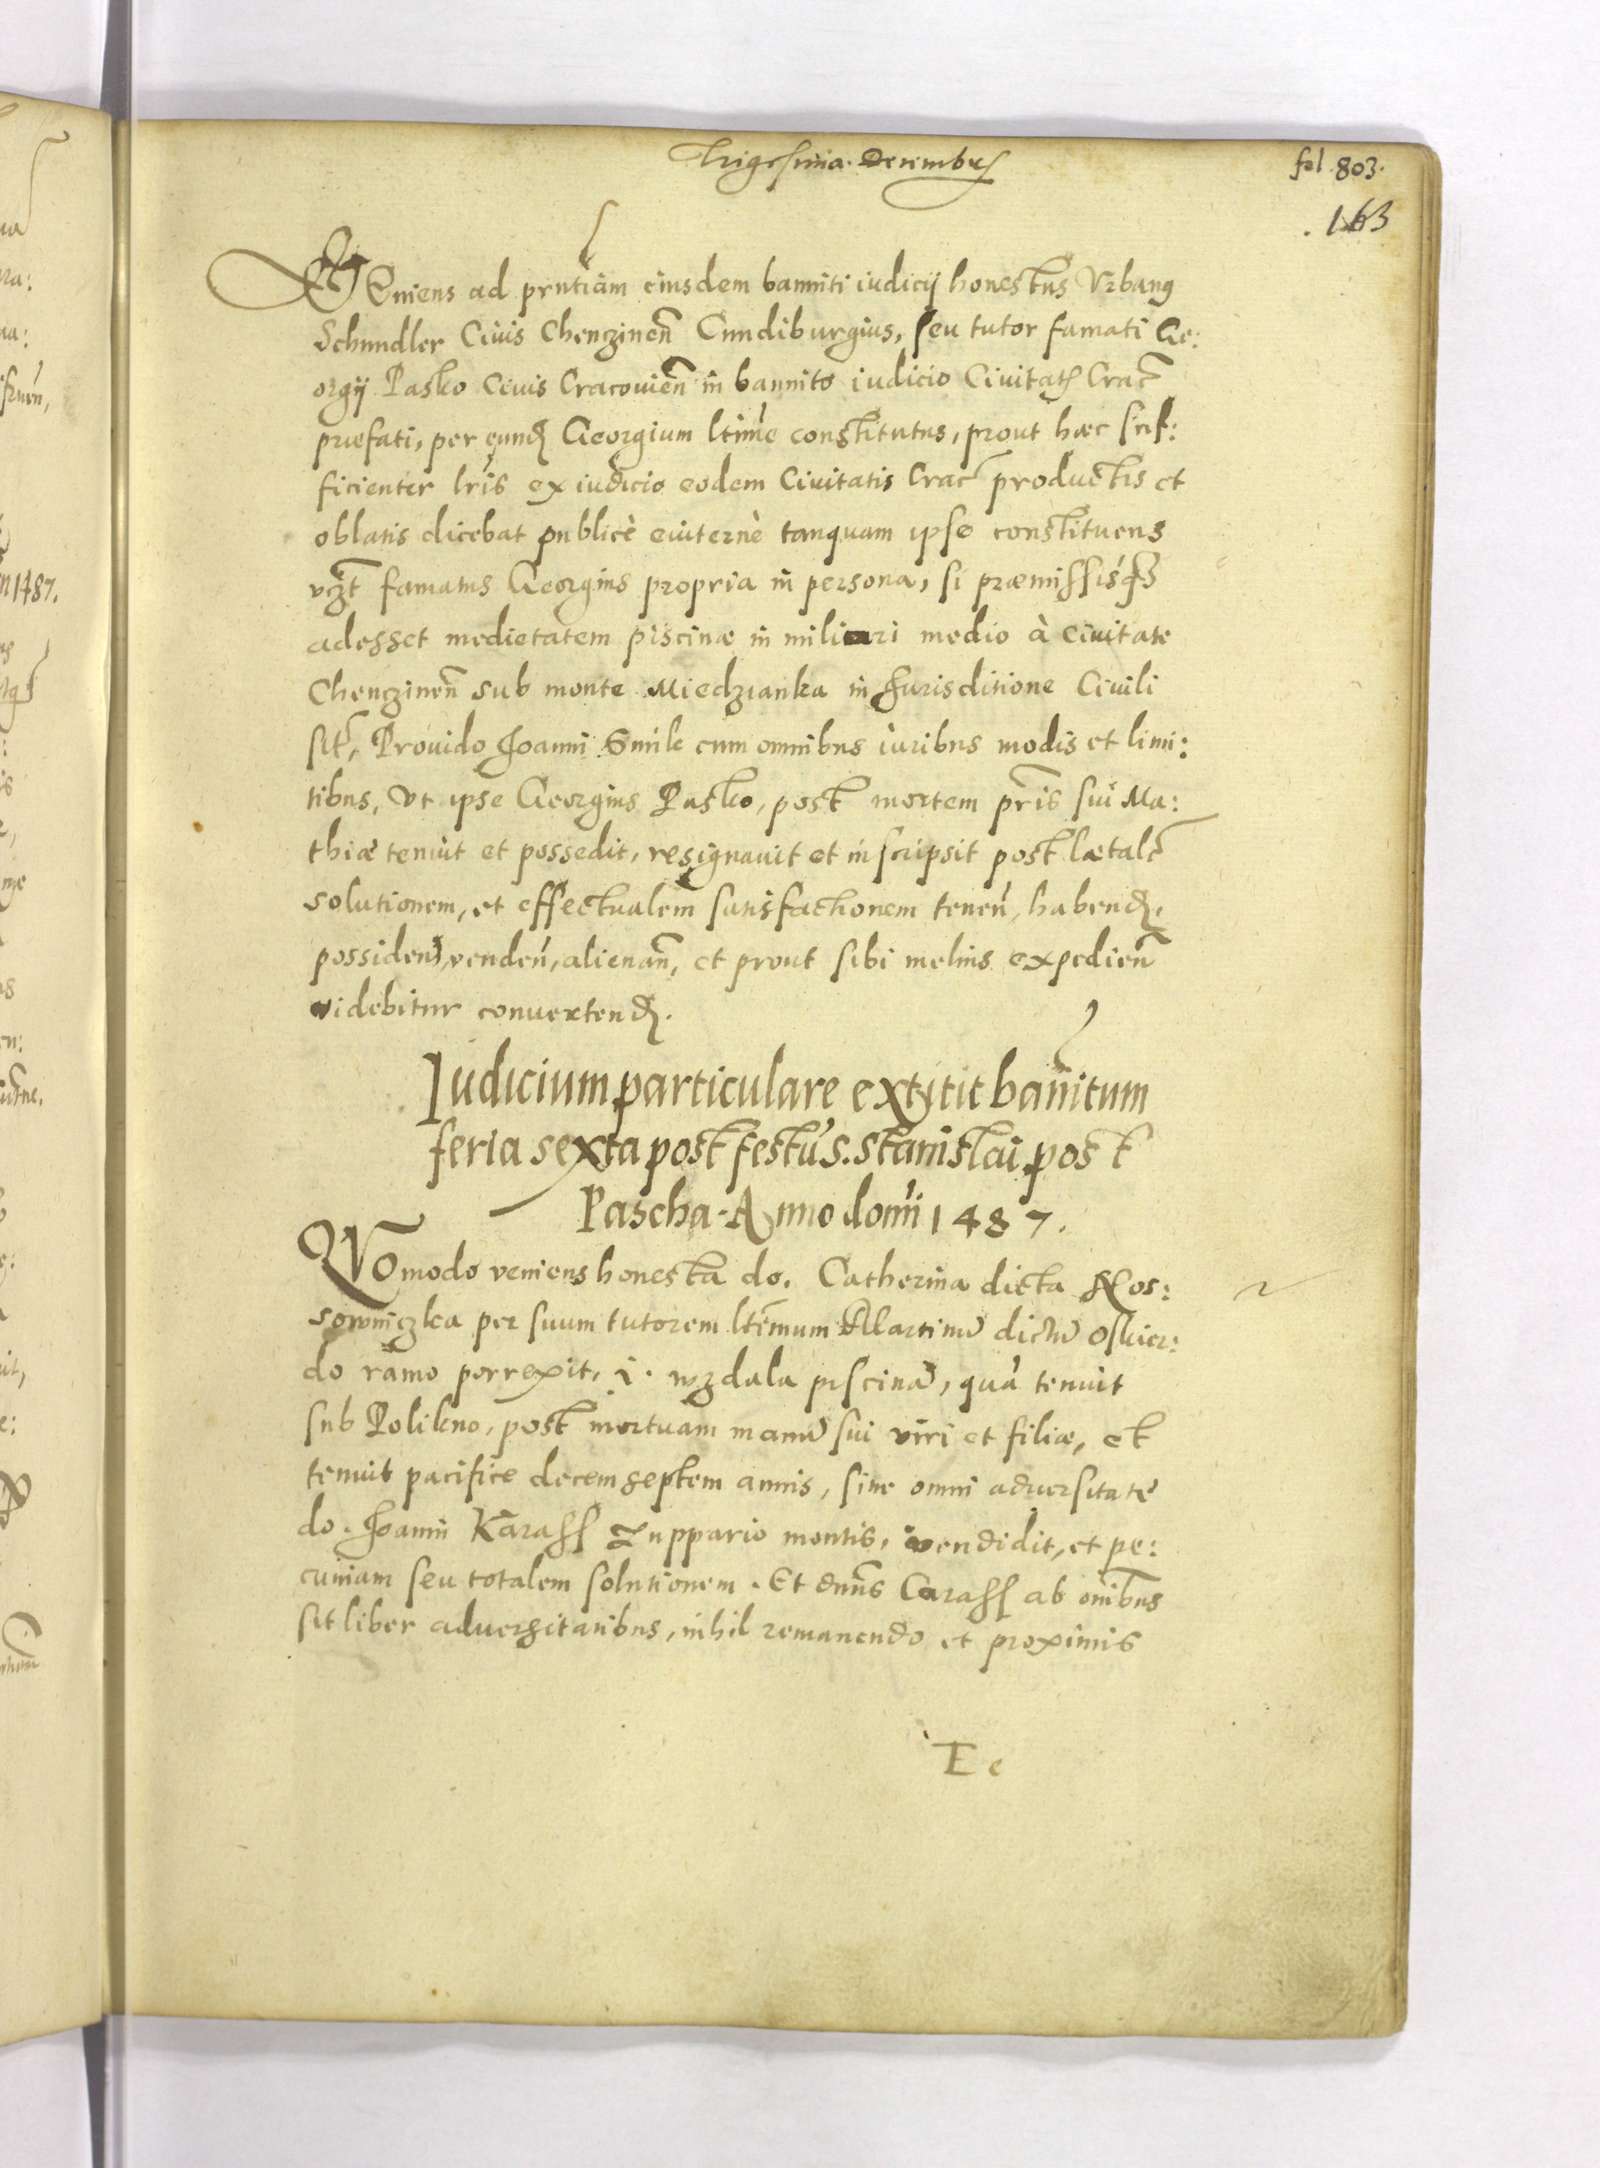 Trigesima Decembris
fol. 803.
163
VEniens ad prntiam eiusdem banniti iudicij honestus Vrbang
Schindler Ciuis Chenczinen Cundiburgius, seu tutor famati Ge:
orgij Pasko Ciuis Cracouien in bannito iudicio Ciuitatis Crac
præfati, per eund Georgium ltime constitutus, prout hæc suf:
ficienter lris ex iudicio eodem Ciuitatis Crac productis et
oblatis dicebat publicè eiuternè tanquam ipse constituens
vzt famatus Georgius propria in persona, si præmissis
adesset medietatem piscinæ in miliari medio à Ciuitate
Chenczinen sub monte Miedzianka in Jurisditione Ciuili
sit, Prouido Joanni Smilk cum omnibus iuribus modis et limi:
tibus, vt ipse Georgius Pasko, post mortem pris sui Ma:
thiæ tenuit et possedit, resignauit et inscripsit post lætale
solutionem, et effectualem satisfactionem tenen, habend,
possiden, venden, alienan, et prout sibi melius expedien
videbitur conuertend.
Iudicium particulare extytit banitum
feria sexta post festu S. Stanislai post
Pascha. Anno domi 1487.
QVomodo veniens honesta do. Catherina dicta Kos:
sowniczka per suum tutorem ltimum Martinu dictu Oskier:
do ramo porrexit, i. wzdala piscina, qua tenuit
sub Polikno, post mortuam manu sui viri et filiæ, et
tenuit pacifice decem septem annis, sine omni aduersitate
do. Joanni Karass Zuppario montis, vendidit, et pe:
cuniam seu totalem solutionem. Et dnus Carass ab omibus
sit liber aduersitatibus, nihil remanendo et proximis
Ee